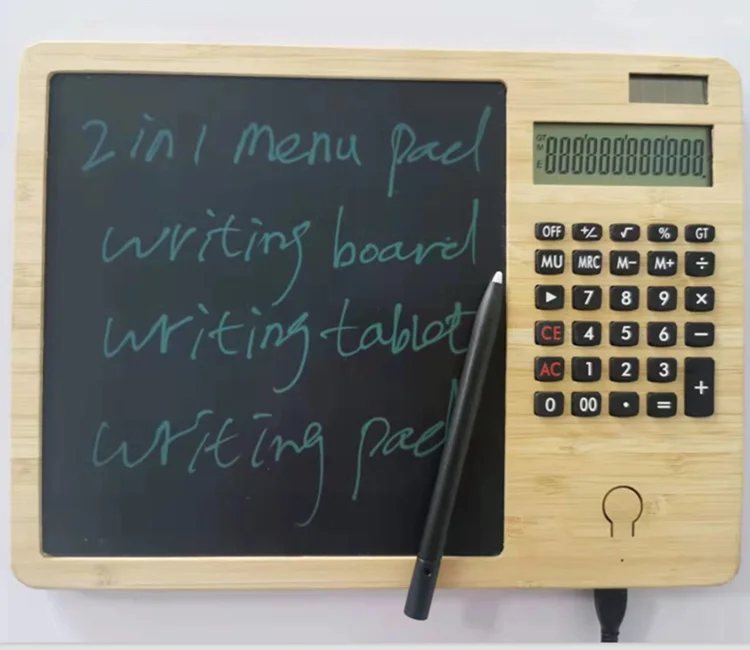 2 in 1 menu pad
writing board
writing tablet
writing pad
GT
M
E
000'000'000'000.
OFF +/− √ % GT
MU MRC M− M+ ÷
▶ 7 8 9 ×
CE 4 5 6 −
AC 1 2 3 +
0 00 · =